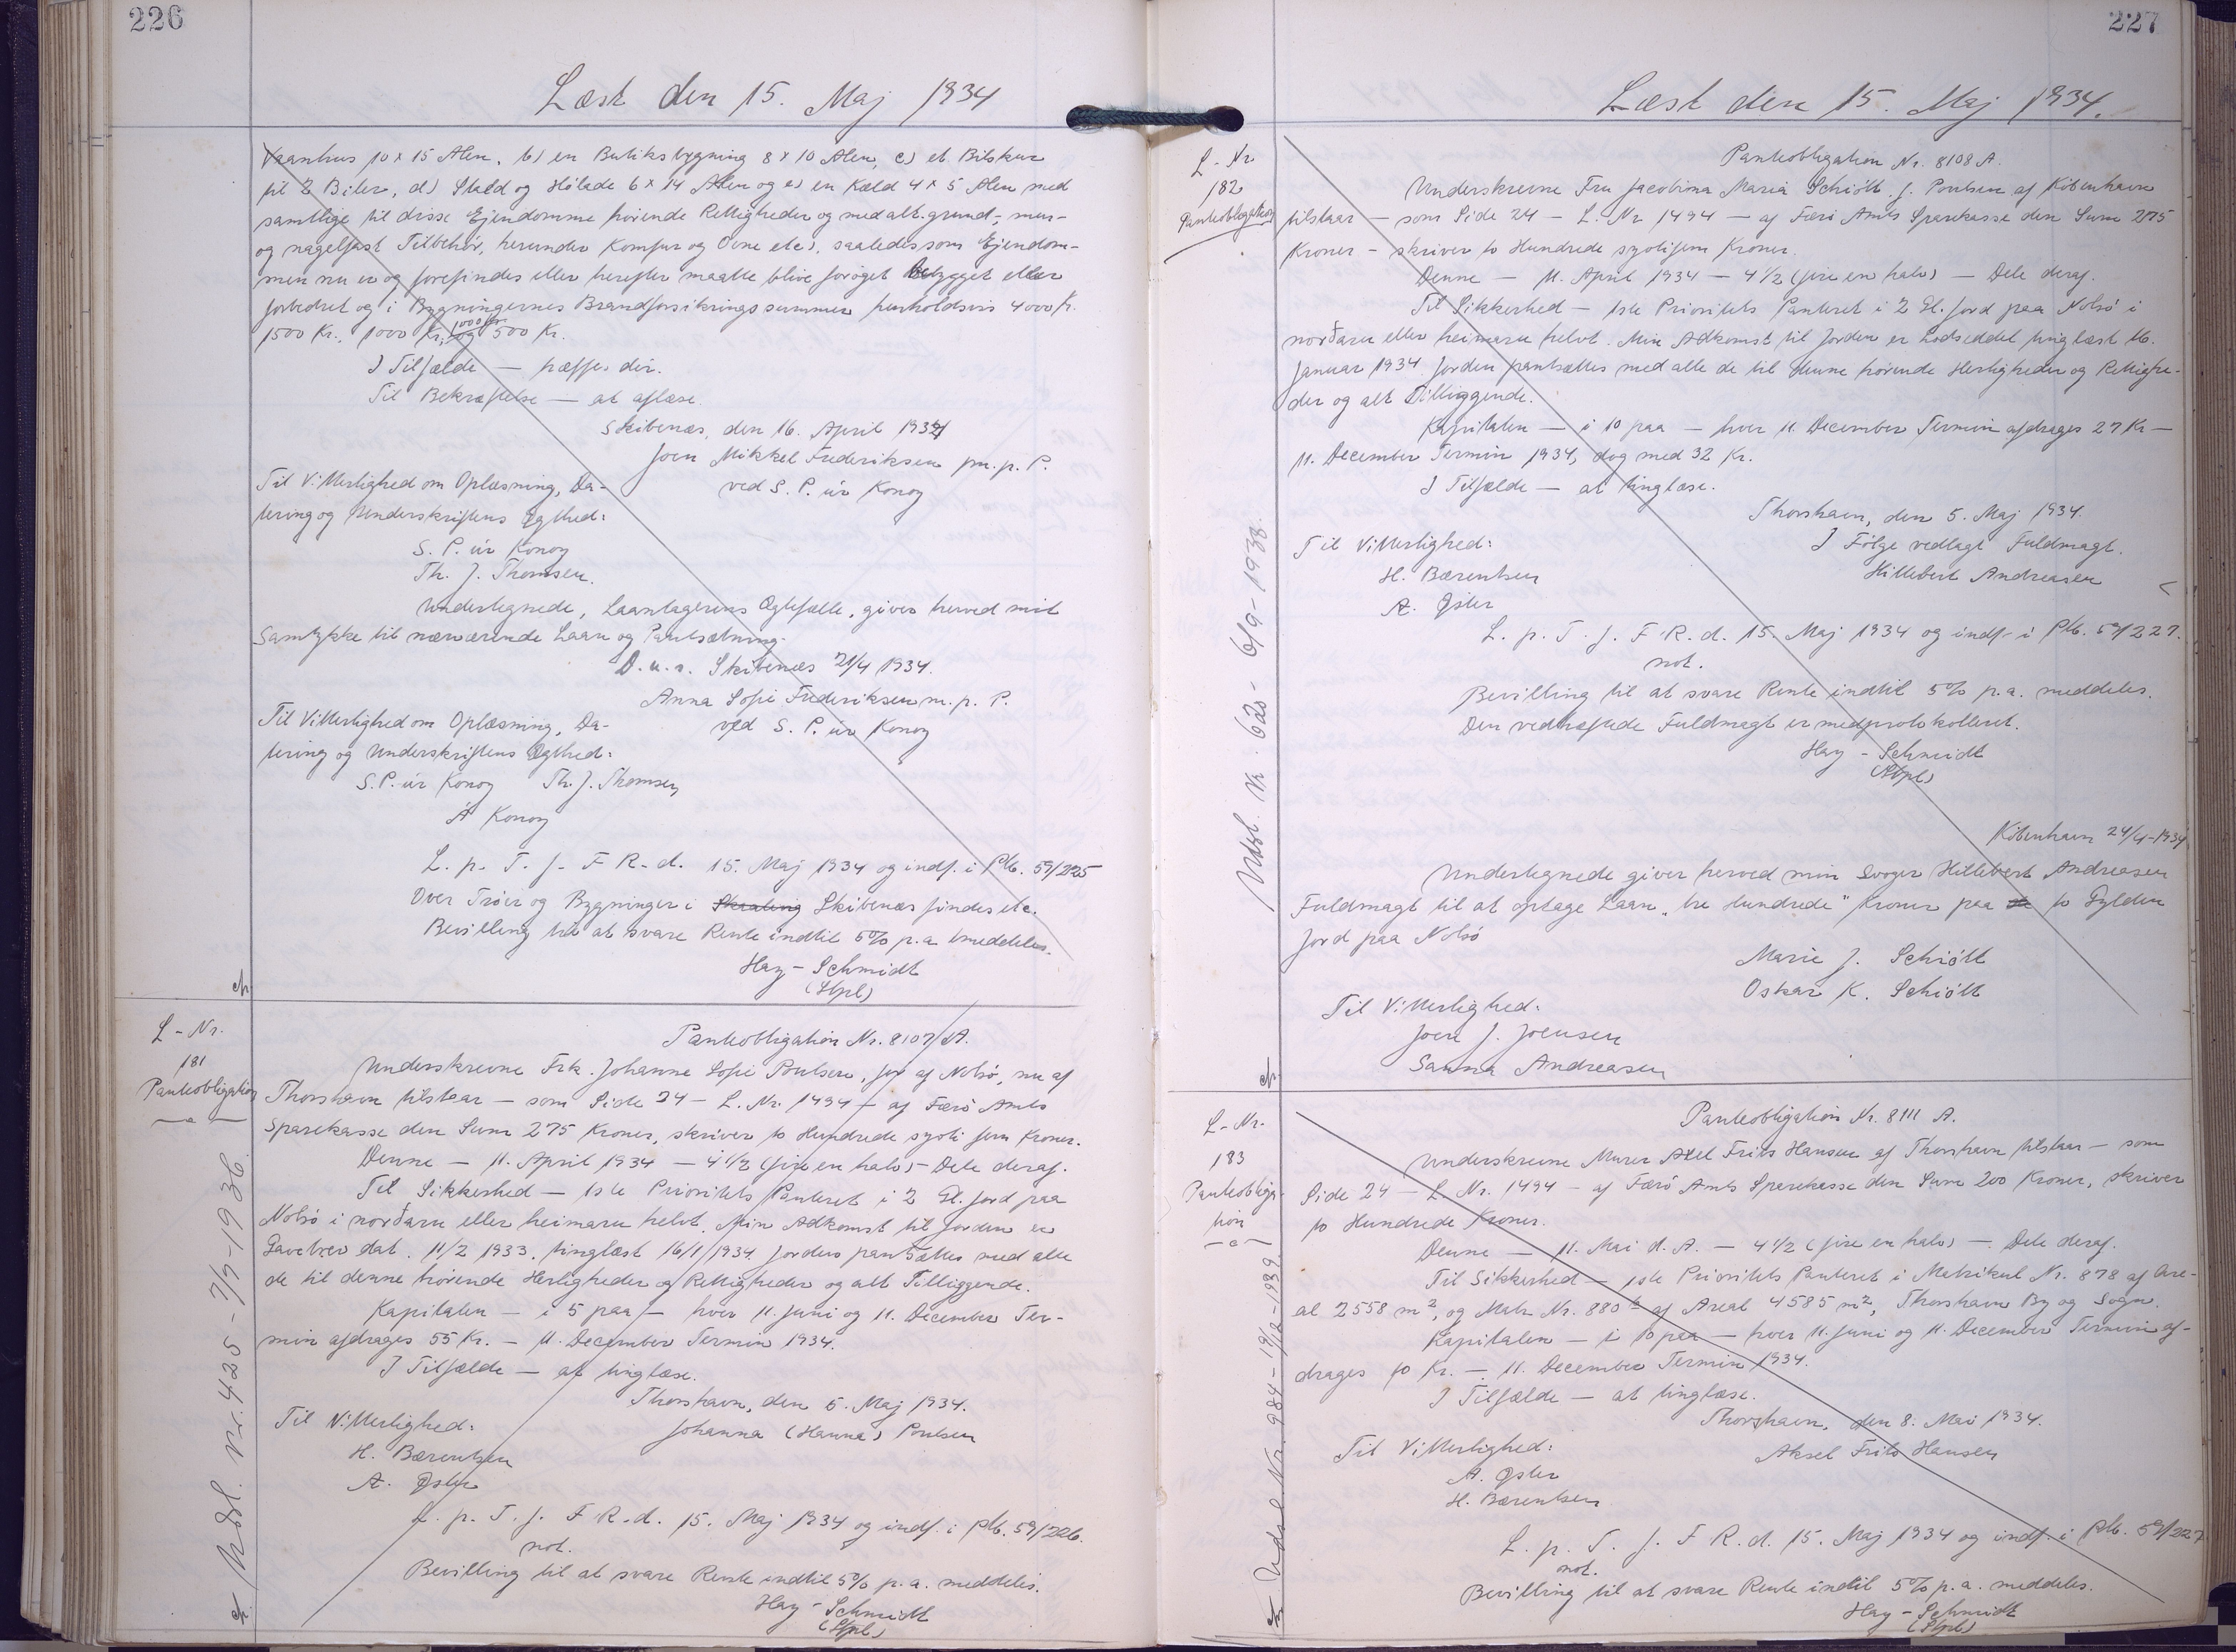 226
Læst den 15. Maj 1934
Vaanhus 10 x 15 Alen, b) en Butiksbygning 8 x 10 Alen, c) et Bilskur
til 2 Biler, d) Stald og Hølade 6 x 14 Alen og e) en Kæld 4 x 5 Alen med
samtlige til disse Ejendomme hørende Rettigheder og med alt grund-, mur-
og nagelfast Tilbehør, herunder Komfur og Ovne etc), saaledes som Ejendom-
men nu er og forefindes eller herefter maatte blive forøget bebygget eller
forbedret og i Bygningernes Brandforsikringssummer henholdsvis 4000 Kr.
1500 Kr., 1000 Kr., 1000 Kr. og 500 Kr.
I Tilfælde — hæftes der.
Til Bekræftelse — at aflæse.
Skibenæs, den 16. April 1934
Joen Mikkel Frederiksen m. p. P.
Til Vitterlighed om Oplæsning, Da-
ved S. P. úr Konoy
tering og Underskriftens Ægthed:
S. P. úr Konoy
Th. J. Thomsen.
Undertegnede, Laantagerens Ægtefælle, giver herved mit
Samtykke til nærværende Laan og Pantsætning.
D. u. s. Skibenæs 21/4 1934.
Anna Sofie Frederiksen m. p. P.
Til Vitterlighed om Oplæsning, Da-
ved S. P. úr Konoy
tering og Underskriftens Ægthed:
S. P. úr Konoy Th. J. Thomsen
Á Konoy
L. p. T. f. F. R. d. 15. Maj 1934 og indf. i Ptb. 59/225
Over Trøer og Bygninger i Skaaling Skibenæs findes etc.
Bevilling til at svare Rente indtil 5% p.a. meddeles.
Hay-Schmidt
(Stpl)
L-Nr.
181
Panteobligation
— a —
Udsl. Nr. 425 - 7/7-1936.
Panteobligation Nr. 8107 A.
Underskrevne Frk. Johanne Sofie Poulsen, før af Nolsø, nu af
Thorshavn tilstaar — som Side 24 — L. Nr. 1494 — af Færø Amts
Sparekasse den Sum 275 Kroner, skriver to Hundrede syoti fem Kroner.
Denne — 11. April 1934 — 4 1/2 (fire en halv) — Dele deraf.
Til Sikkerhed — 1ste Prioritets Panteret i 2 Gl. Jord paa
Nolsø i norðaru eller heimaru helvt. Min Adkomst til Jorden er
Gavebrev dat. 11/2 1933, tinglæst 16/1 1934. Jorden pantsættes med alle
de til denne hørende Herligheder og Rettigheder og alt Tilliggende.
Kapitalen — i 5 paa — hver 11. Juni og 11. December Ter-
min afdrages 55 Kr. — 11. December Termin 1934.
I Tilfælde — at tinglæse.
Thorshavn, den 5. Maj 1934.
Til Vitterlighed:
Johanna (Hanna) Poulsen
H. Bærentsen
A. Øster
L. p. T. f. F. R. d. 15. Maj 1934 og indf. i Ptb. 59/226.
not.
Bevilling til at svare Rente indtil 5% p.a. meddeles.
Hay-Schmidt
(Stpl)
227
Læst den 15. Maj 1934.
L-Nr
182
Panteobligation
Udsl. Nr. 620 - 6/9-1938
Panteobligation Nr. 8108 A.
Underskrevne Fru Jacobina Maria Schiött f. Poulsen af København
tilstaar — som Side 24 — L. Nr 1494 — af Færø Amts Sparekasse den Sum 275
Kroner — skriver to Hundrede syotifem Kroner.
Denne — 11. April 1934 — 4 1/2 (fire en halv) — Dele deraf.
Til Sikkerhed — 1ste Prioritets Panteret i 2 Gl. Jord paa Nolsø i
norðaru eller heimaru helvt. Min Adkomst til Jorden er Lodseddel tinglæst 16.
Januar 1934 Jorden pantsættes med alle de til denne hørende Herligheder og Rettighe-
der og alt Tilliggende.
Kapitalen — i 10 paa — hver 11. December Termin afdrages 27 Kr —
11. December Termin 1934, dog med 32 Kr.
I Tilfælde — at tinglæse.
Thorshavn, den 5. Maj 1934.
Til Vitterlighed:
I Følge vedlagt Fuldmagt.
H. Bærentsen
Hillebert Andreasen
A. Øster
L. p. T. f. F. R. d. 15. Maj 1934 og indf. i Ptb. 59/227.
not.
Bevilling til at svare Rente indtil 5% p.a. meddeles.
Den vedhæftede Fuldmagt er medprotokolleret.
Hay-Schmidt
(Stpl)
København 24/4-1934
Undertegnede giver herved min Svoger Hillebert Andreasen
Fuldmagt til at optage Laan „tre Hundrede" Kroner paa to Gylden
Jord paa Nolsö
Marie J. Schiött
Oskar K. Schiött
Til Vitterlighed:
Joen J. Joensen
Sanna Andreasen
L-Nr.
183
Panteobliga-
tion
— a —
Udsl. Nr. 984 - 19/12-1939.
Panteobligation Nr. 8111 A.
Underskrevne Murer Axel Frits Hansen af Thorshavn tilstaar — som
Side 24 — L. Nr. 1494 — af Færø Amts Sparekasse den Sum 200 Kroner, skriver
to Hundrede Kroner.
Denne — 11. Mai d. A. — 4 1/2 (fire en halv) — Dele deraf.
Til Sikkerhed — 1ste Prioritets Panteret i Matrikul Nr. 878 af Are-
al 2558 m², og Matr. Nr. 880 b af Areal 4585 m², Thorshavn By og Sogn.
Kapitalen — i 10 paa — hver 11. Juni og 11. December Termin af-
drages 10 Kr. — 11. December Termin 1934.
I Tilfælde — at tinglæse.
Thorshavn, den 8. Mai 1934.
Til Vitterlighed:
Aksel Frits Hansen
A. Øster
H. Bærentsen
L. p. T. f. F. R. d. 15. Maj 1934 og indf. i Ptb. 59/227
not.
Bevilling til at svare Rente indtil 5% p.a. meddeles.
Hay-Schmidt
(Stpl)